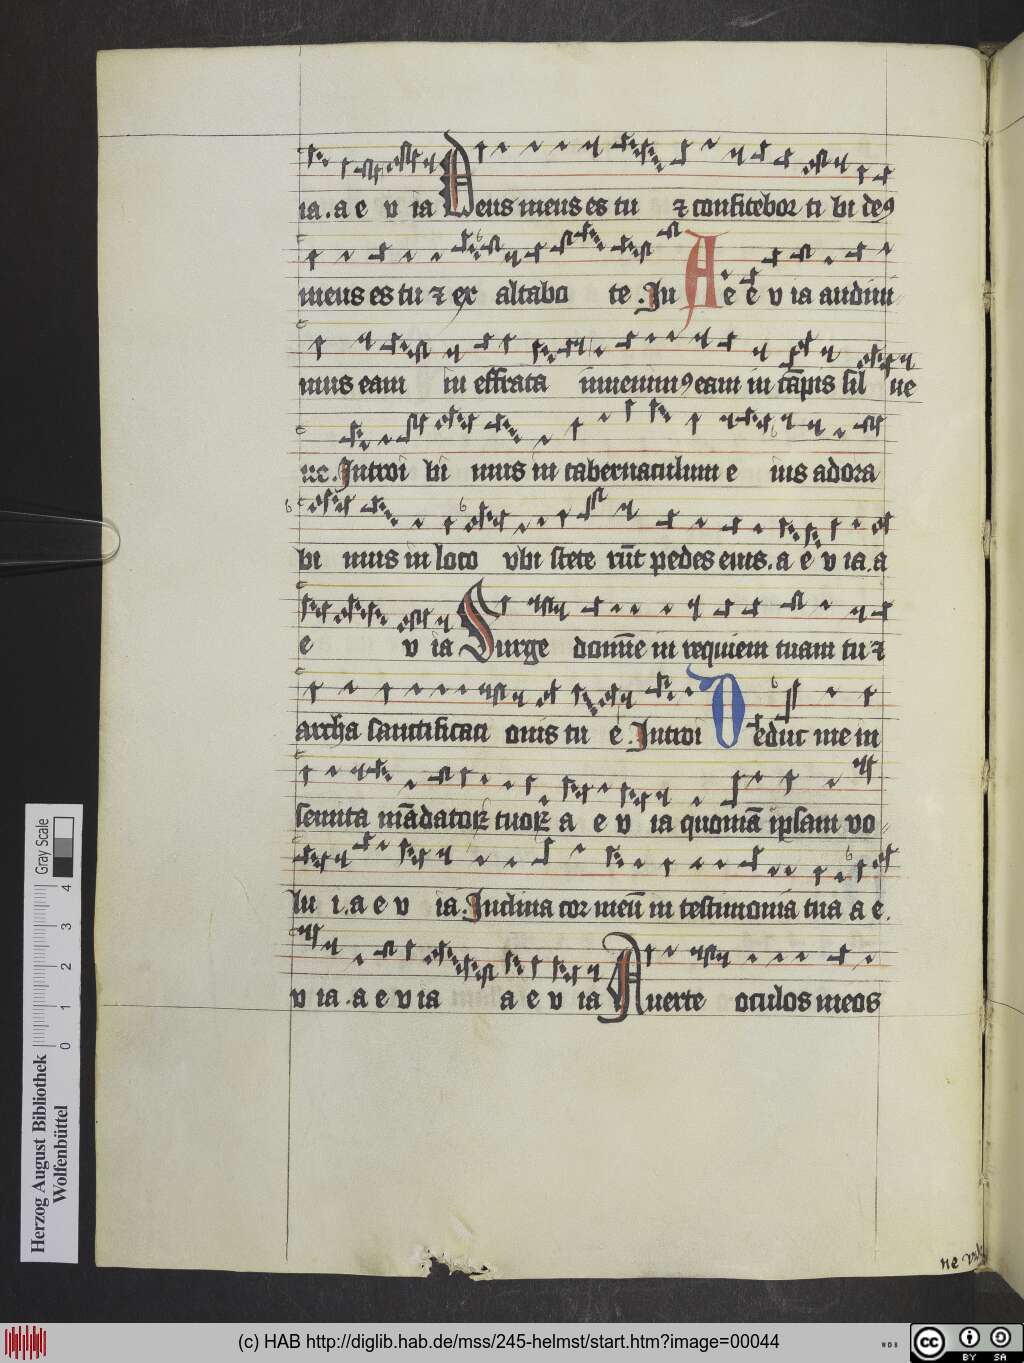 ia. a e v ia Deus meus es tu ⁊ confitebor ti bi deꝰ
meus es tu ⁊ ex altabo te. In A e e v ia audiui-
mus eam in effrata inuenimꝰ eam in cāpis sil ue
ne. Introi bi mus in tabernaculum e ius adora
bi mus in loco vbi stete rūt pedes eius. a e v ia. a
e v ia Surge domīne in requiem tuam tu ⁊
archa sanctificati onis tu e. Introi Deduc me in
semita mādatoꝝ tuoꝝ a e v ia quoniā ipsam vo-
lu i. a e v ia. Inclina cor meū in testimonia tua a e.
v ia. a e v ia a e v ia Auerte oculos meos
ne
Gray Scale
0 1 2 3 4
Herzog August Bibliothek
Wolfenbüttel
(c) HAB http://diglib.hab.de/mss/245-helmst/start.htm?image=00044
WDB
cc BY SA